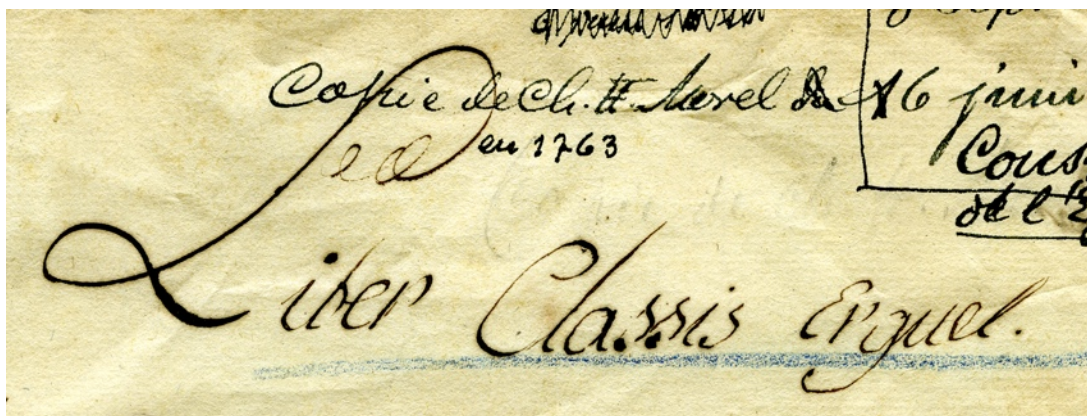 Copie de Ch. F. Morel
16 juin
en 1763
Cons
de l'E
Liber Classis Erguel.